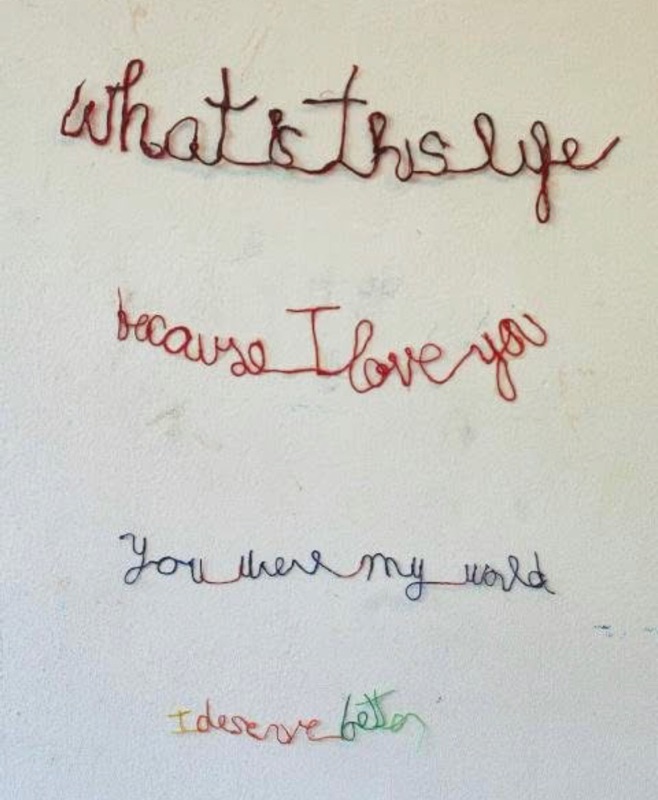 what is this life
because I love you
You were my world
I deserve better